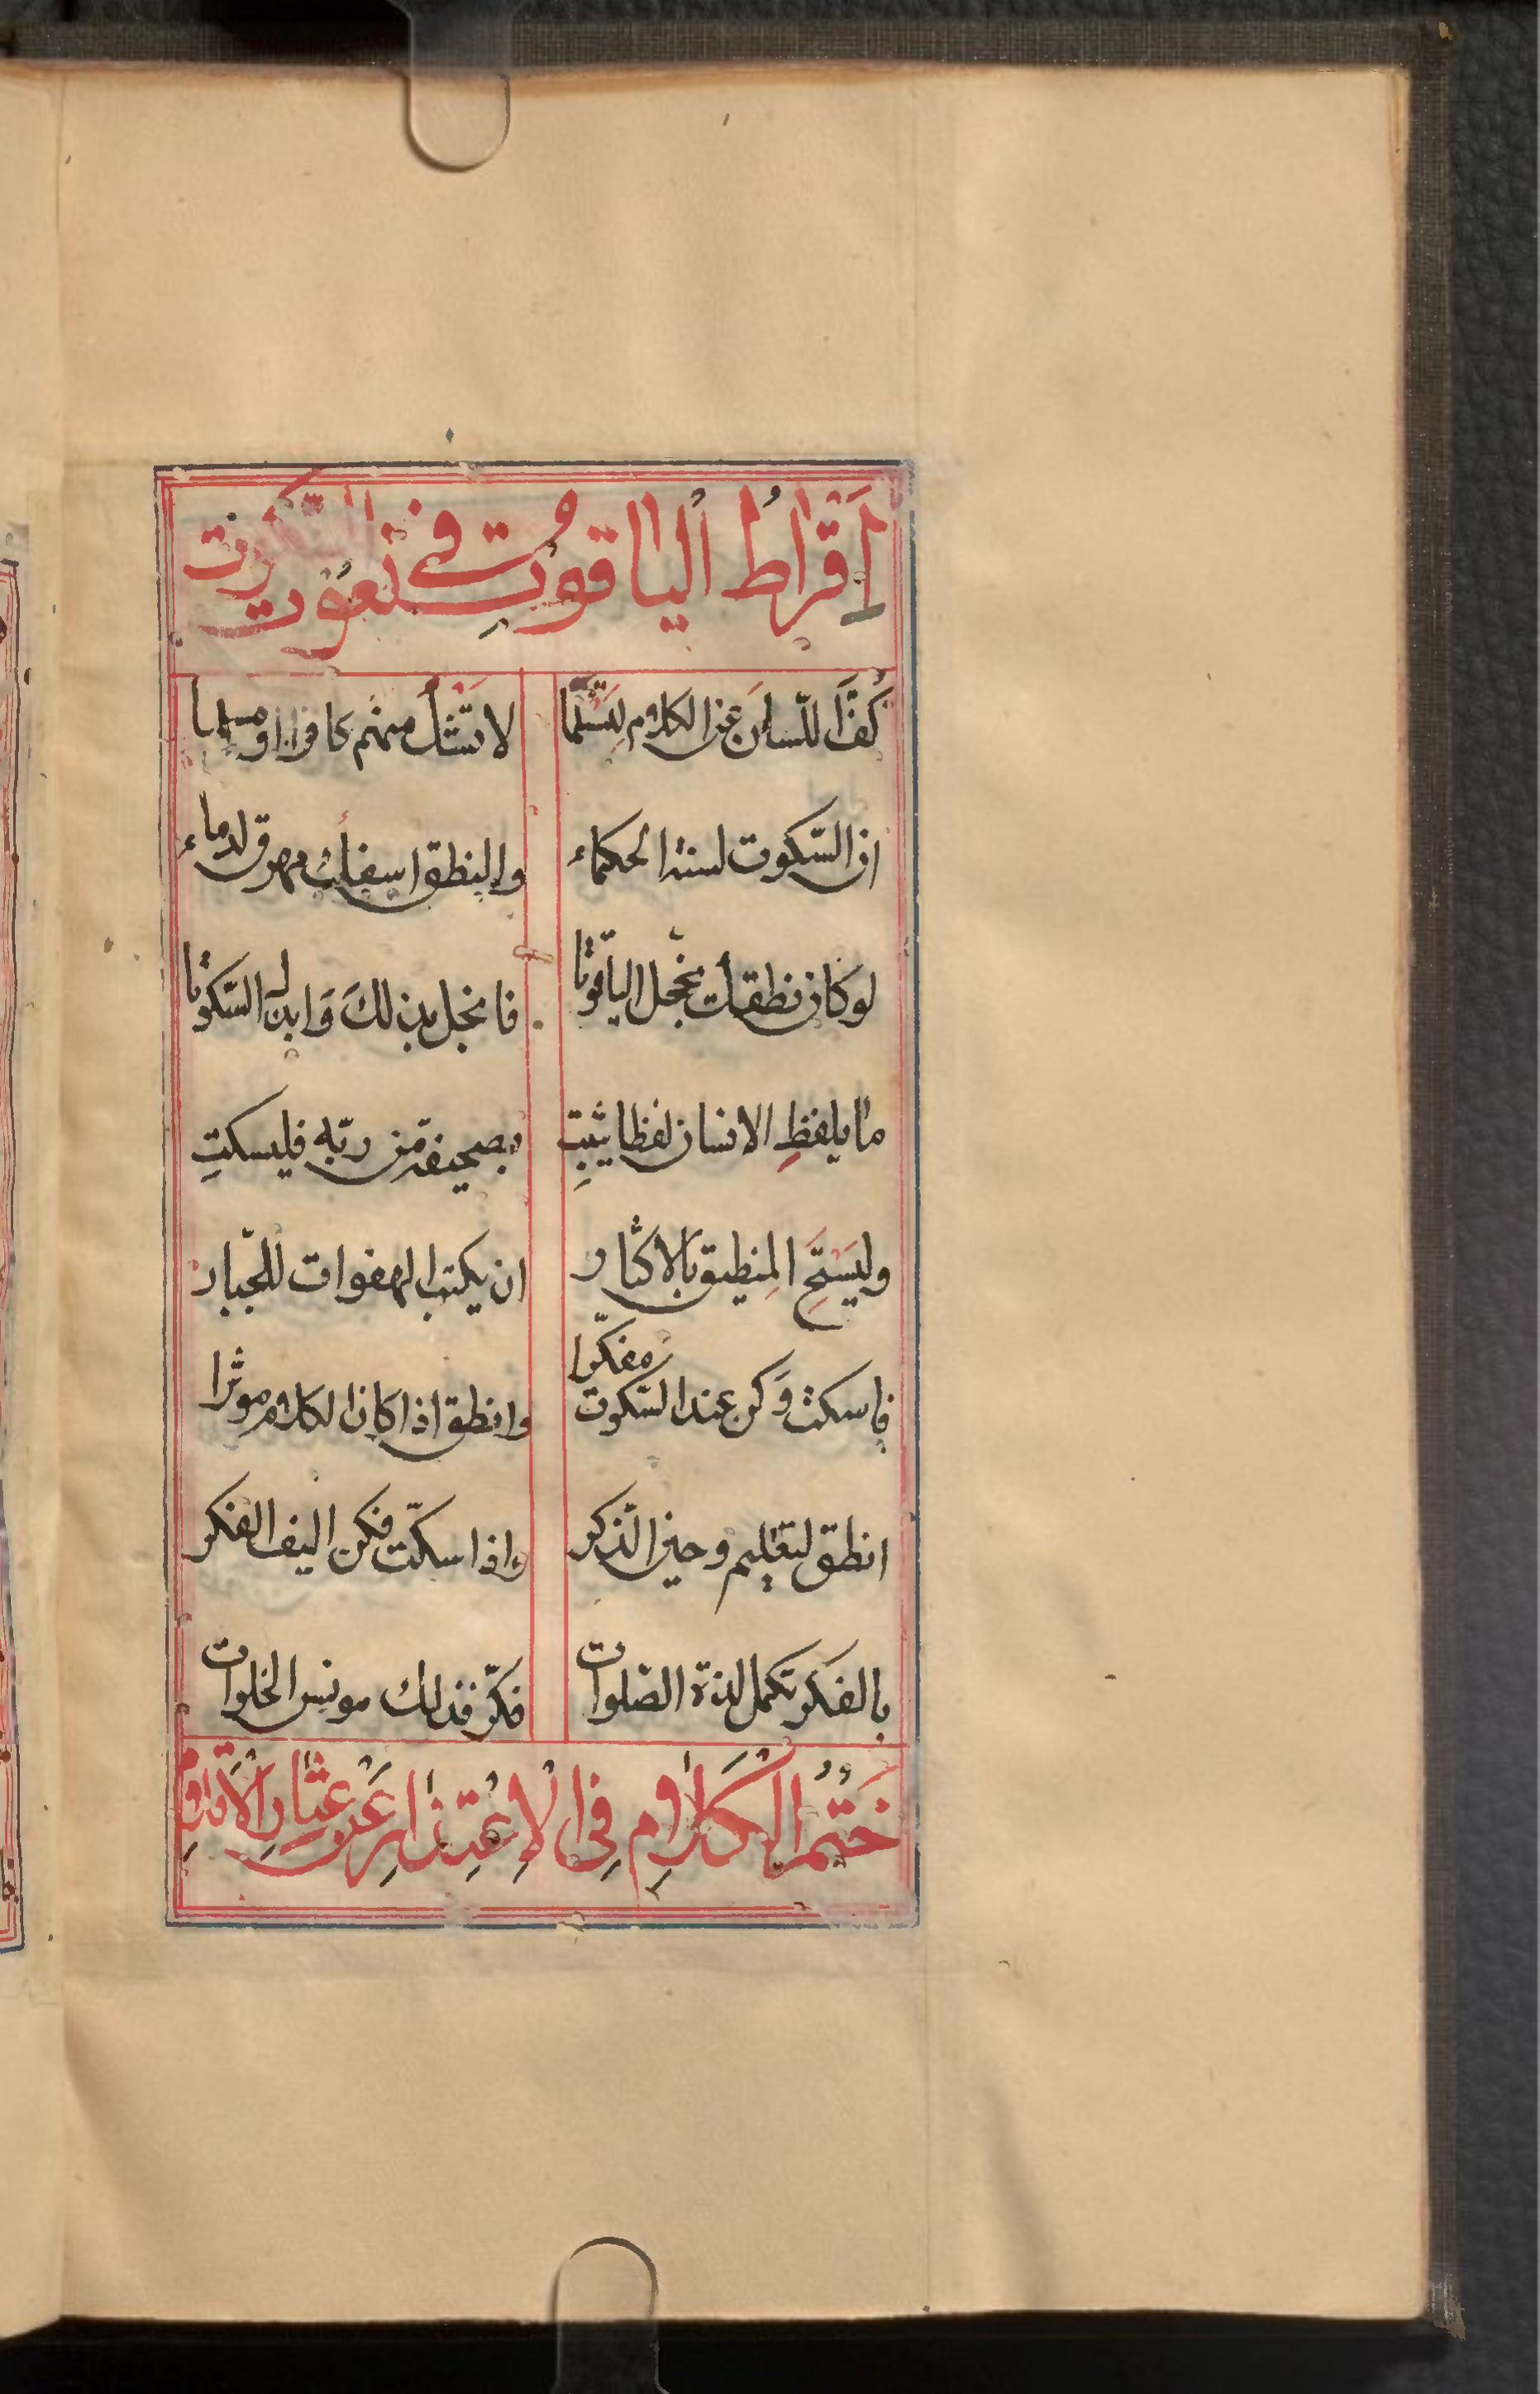 اَقْراطُ اْلياقوُتِ في نُعوُت السّكوت
كُفَّ اللّسانَ عن الكلام لِتَسْلَما
لا تَسْئَلْ منهم كافرا او مسلما
ان السّكوت لسنة الحكماء
والنطق اسفك مهرق لدماء
لو كان نطقك يخجل الياقوتا
فانخل بذلك وَابذل السّكوتا
ما يلفظِ الانسان لفظا يثبتِ
بصحيفة من ربّه فليسكتِ
وليَسْتَحِ المِنطيق بالاكثار
ان يكتب الهفوات للجبّار
فاسكت وَكن عند السّكوت مفكّرا
وانطق اذا كان الكلام موثرا
انطق لتعليم وحين الذّكر
واذا سكتّ فكن اليف الفكر
بالفكر تكمل لذة الصلوات
فكّر فذلك مونس الخلوات
خَتْمُ الْكَلامِ فِي الْاِعْتِذارِ عَن عِثارِ الْاَقْدامِ